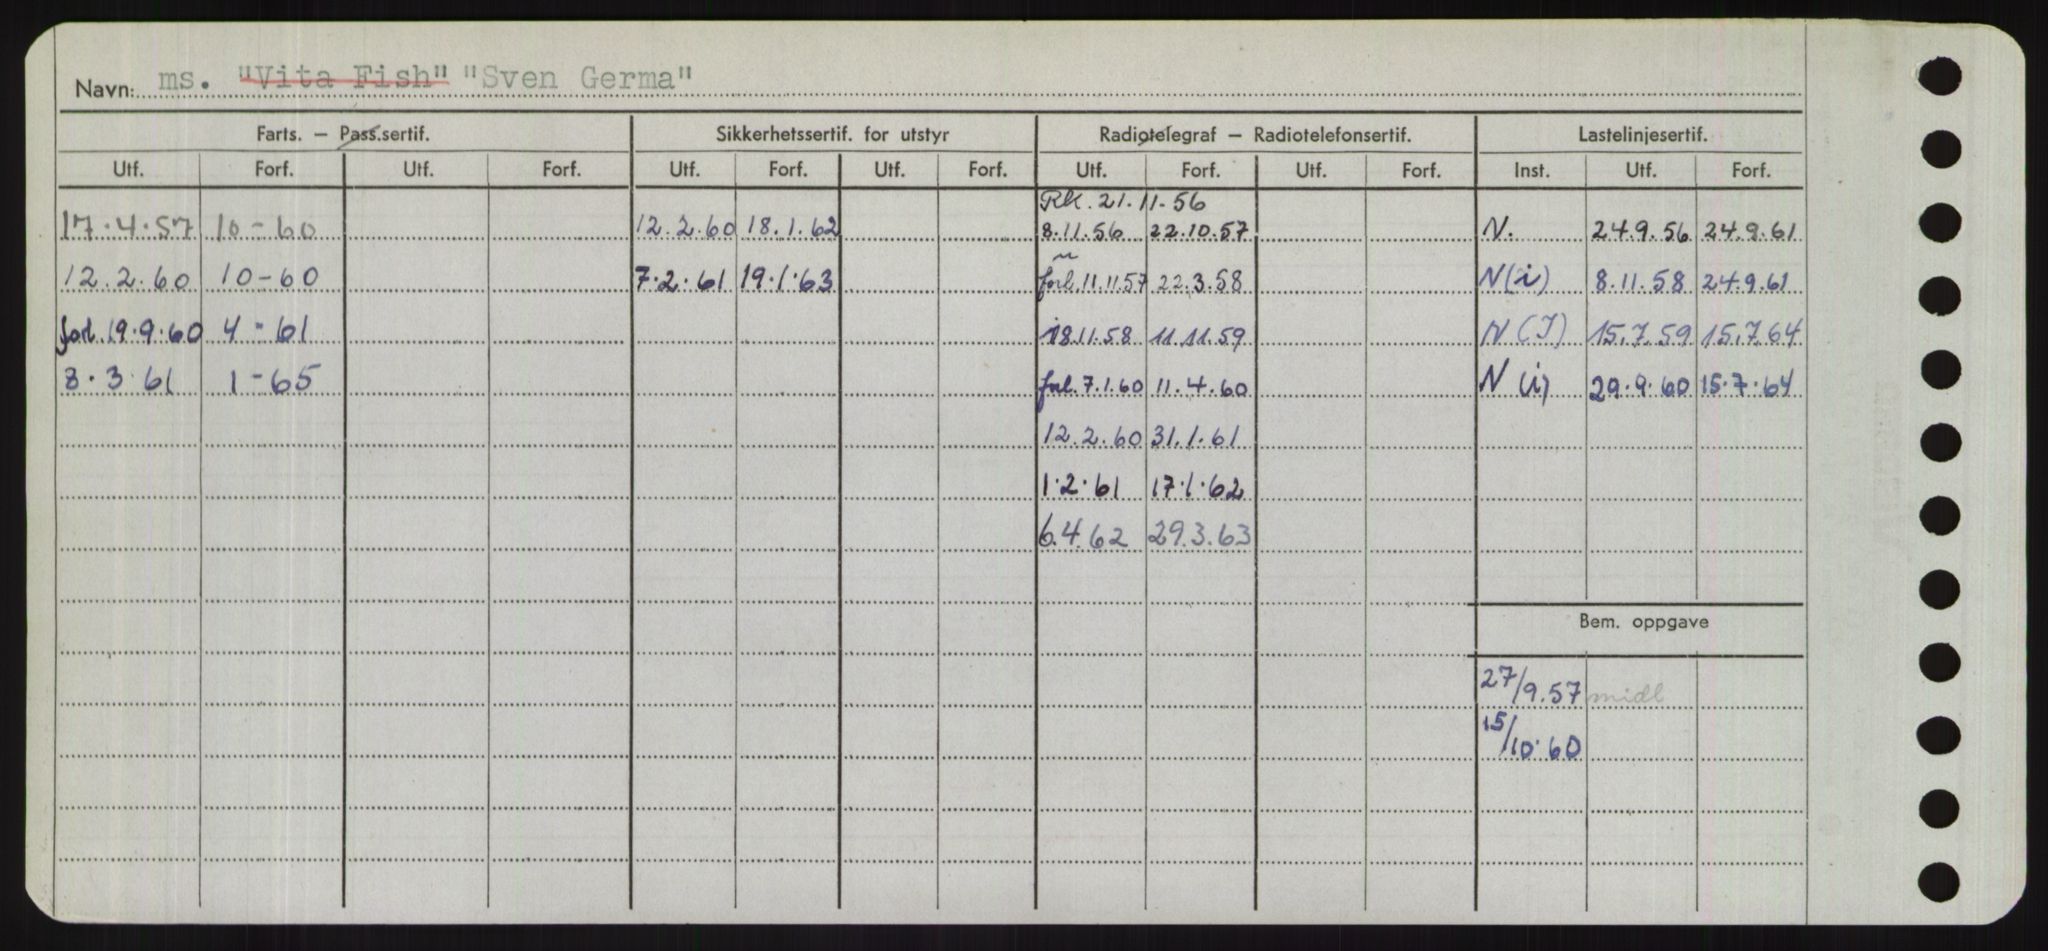 Navn: ms. "Vita Fish" "Sven Germa"
Farts. — Pass.sertif. Sikkerhetssertif. for utstyr Radiotelegraf — Radiotelefonsertif. Lastelinjesertif.
Utf. Forf. Utf. Forf. Utf. Forf. Utf. Forf. Utf. Forf. Utf. Forf. Inst. Utf. Forf.
Rk. 21.11.56
17.4.57 10-60 12.2.60 18.1.62 8.11.56 22.10.57 N. 24.9.56 24.9.61
12.2.60 10-60 7.2.61 19.1.63 forl. 11.11.57 22.3.58 N(i) 8.11.58 24.9.61
forl. 19.9.60 4-61 18.11.58 11.11.59 N(I) 15.7.59 15.7.64
8.3.61 1-65 forl. 7.1.60 11.4.60 N(i) 29.9.60 15.7.64
12.2.60 31.1.61
1.2.61 17.1.62
6.4.62 29.3.63
Bem. oppgave
27/9.57 midl
15/10.60